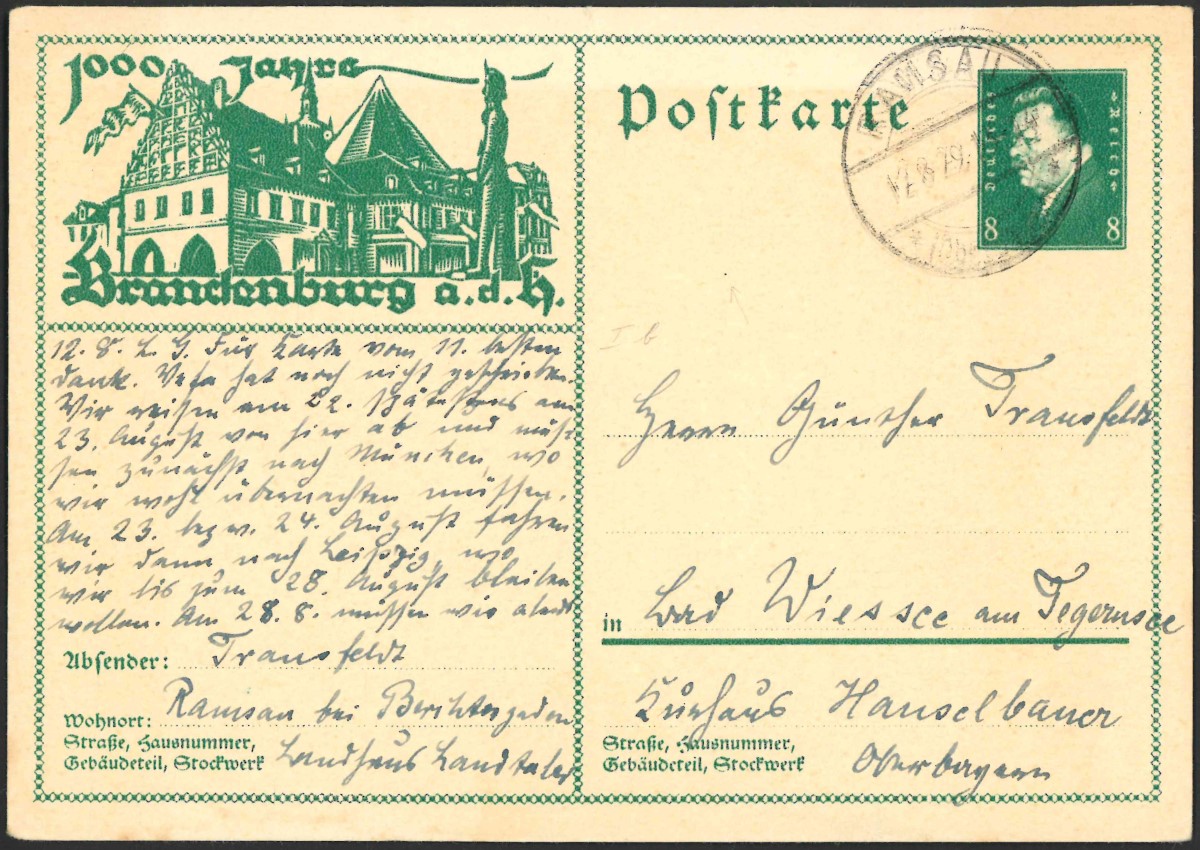 1000 Jahre
Brandenburg a.d.H.
Postkarte
RAMSAU
12.8.29.
Deutsches Reich
8 8
I b
12. 8. L. G. Für Karte vom 11. besten
Dank. Vera hat noch nicht geschrieben.
Wir reisen am 22. spätestens am
23. August von hier ab und müs-
sen zunächst nach München, wo
wir wohl übernachten müssen.
Am 23. bezw. 24. August fahren
wir dann nach Leipzig, wo
wir bis zum 28. August bleiben
wollen. Am 28. 8. müssen wir
Absender: Transfeldt
Wohnort: Ramsau bei Berchtesgaden
Straße, Hausnummer,
Gebäudeteil, Stockwerk Landhaus Landtaler
Herrn Günther Transfeldt
in Bad Wiessee am Tegernsee
Kurhaus Hanselbauer
Straße, Hausnummer,
Gebäudeteil, Stockwerk Oberbayern